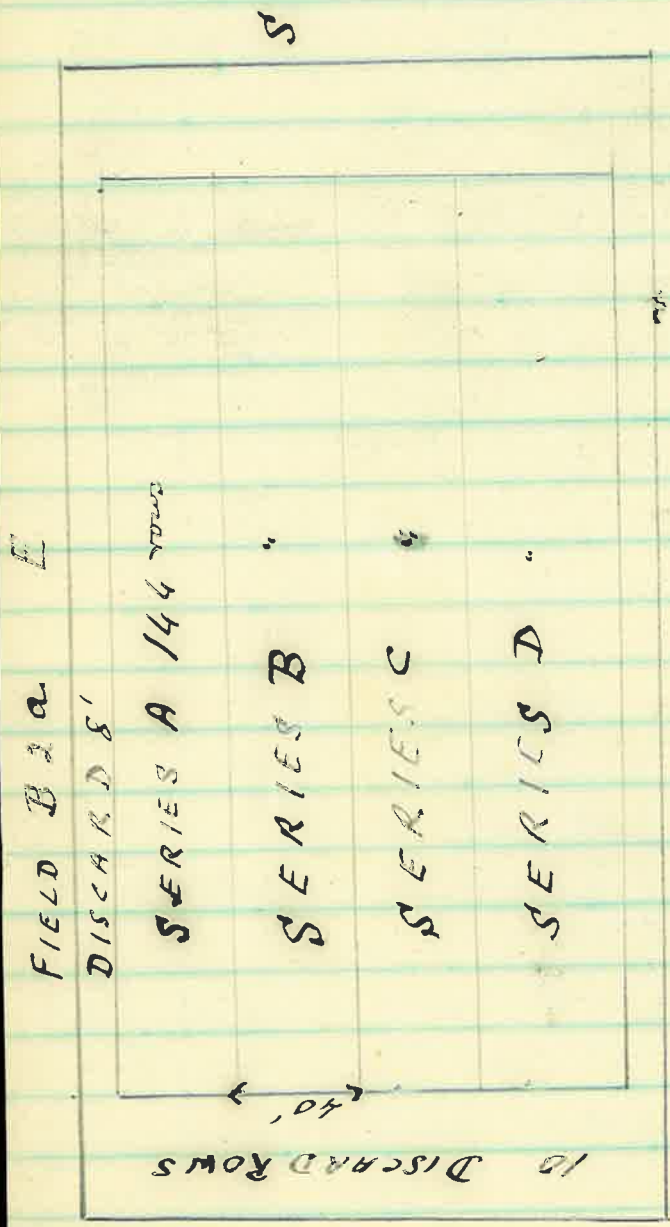 FIELD B2a E
S
DISCARD 8'
SERIES A 144 rows
SERIES B "
SERIES C "
SERIES D "
40'
10 DISCARD ROWS